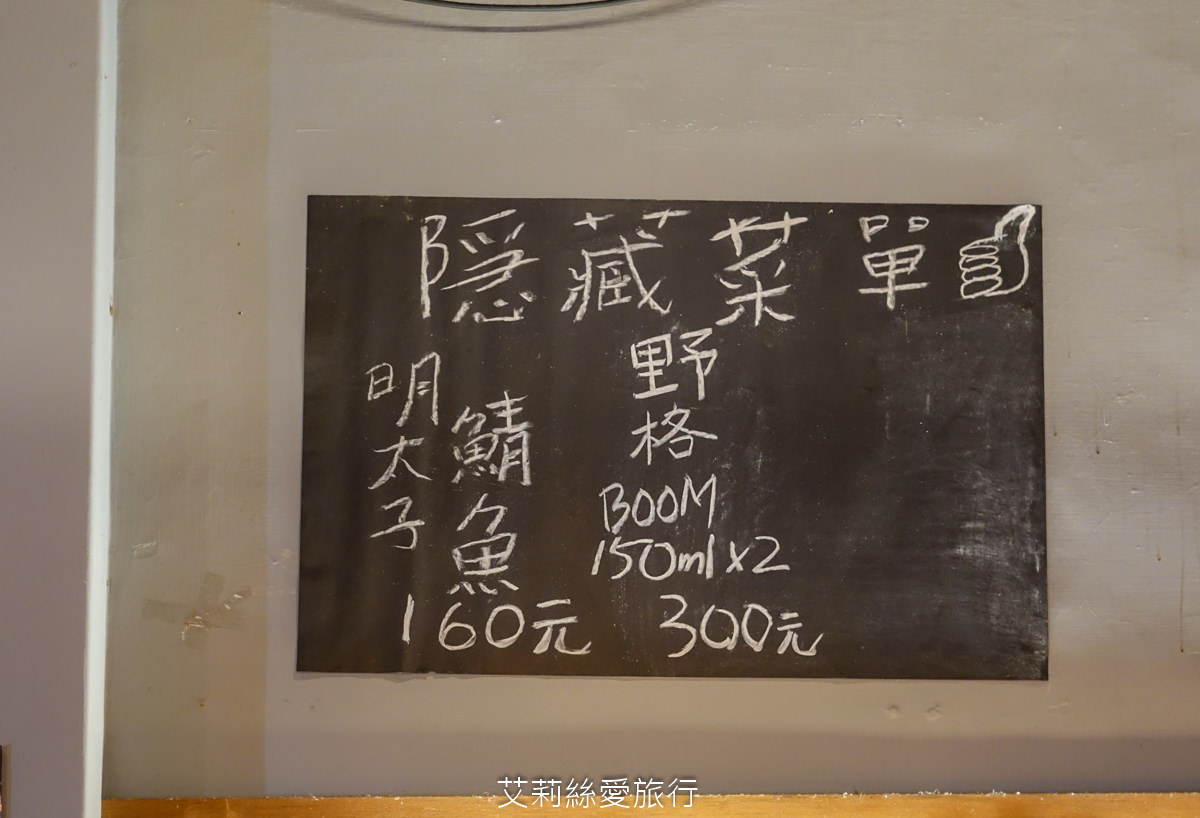 隱藏菜單
明太子
鯖魚
160元
野格
BOOM
150ml x2
300元
艾莉絲愛旅行